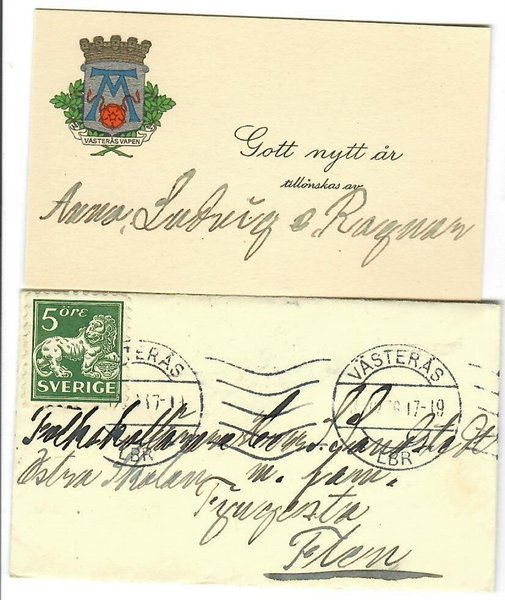 VÄSTERÅS VAPEN
Gott nytt år
tillönskas av
Anna, Ludvig o. Ragnar
5 ÖRE
SVERIGE
VÄSTERÅS
17-19
LBR
VÄSTERÅS
17-19
LBR
Folkskollärare Herr
Östra Skolan m. fam.
Flen